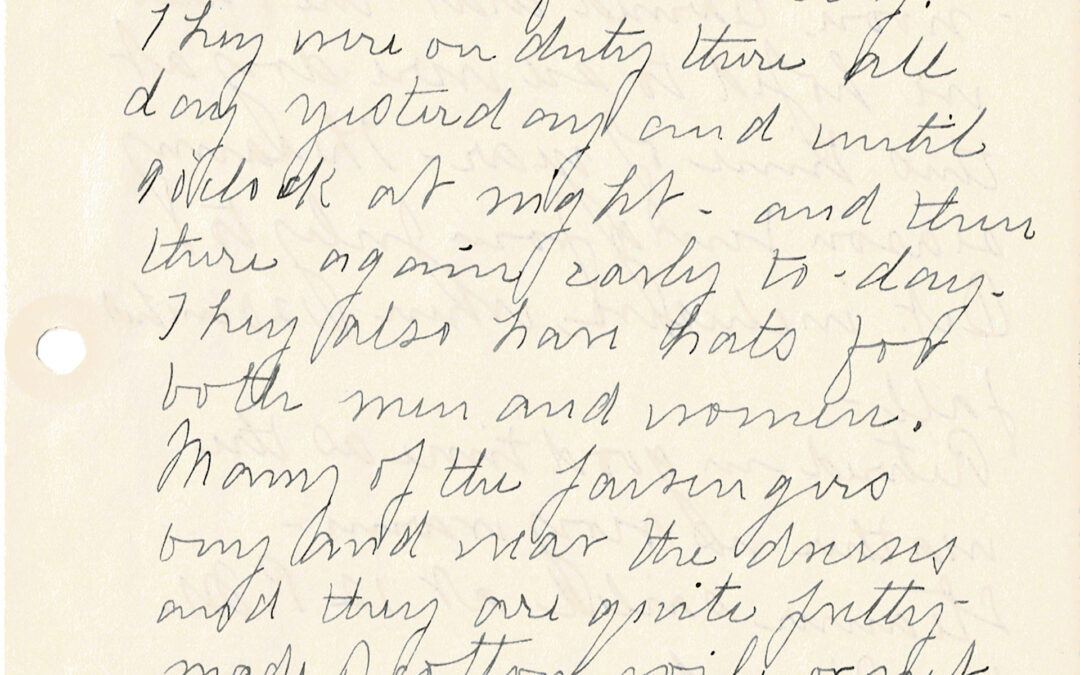 They were on duty there all
day yesterday and until
9 o'clock at night - and then
there again early to-day.
They also have hats for
both men and women.
Many of the passengers
buy and wear the dresses
and they are quite pretty-
made of cotton voile or